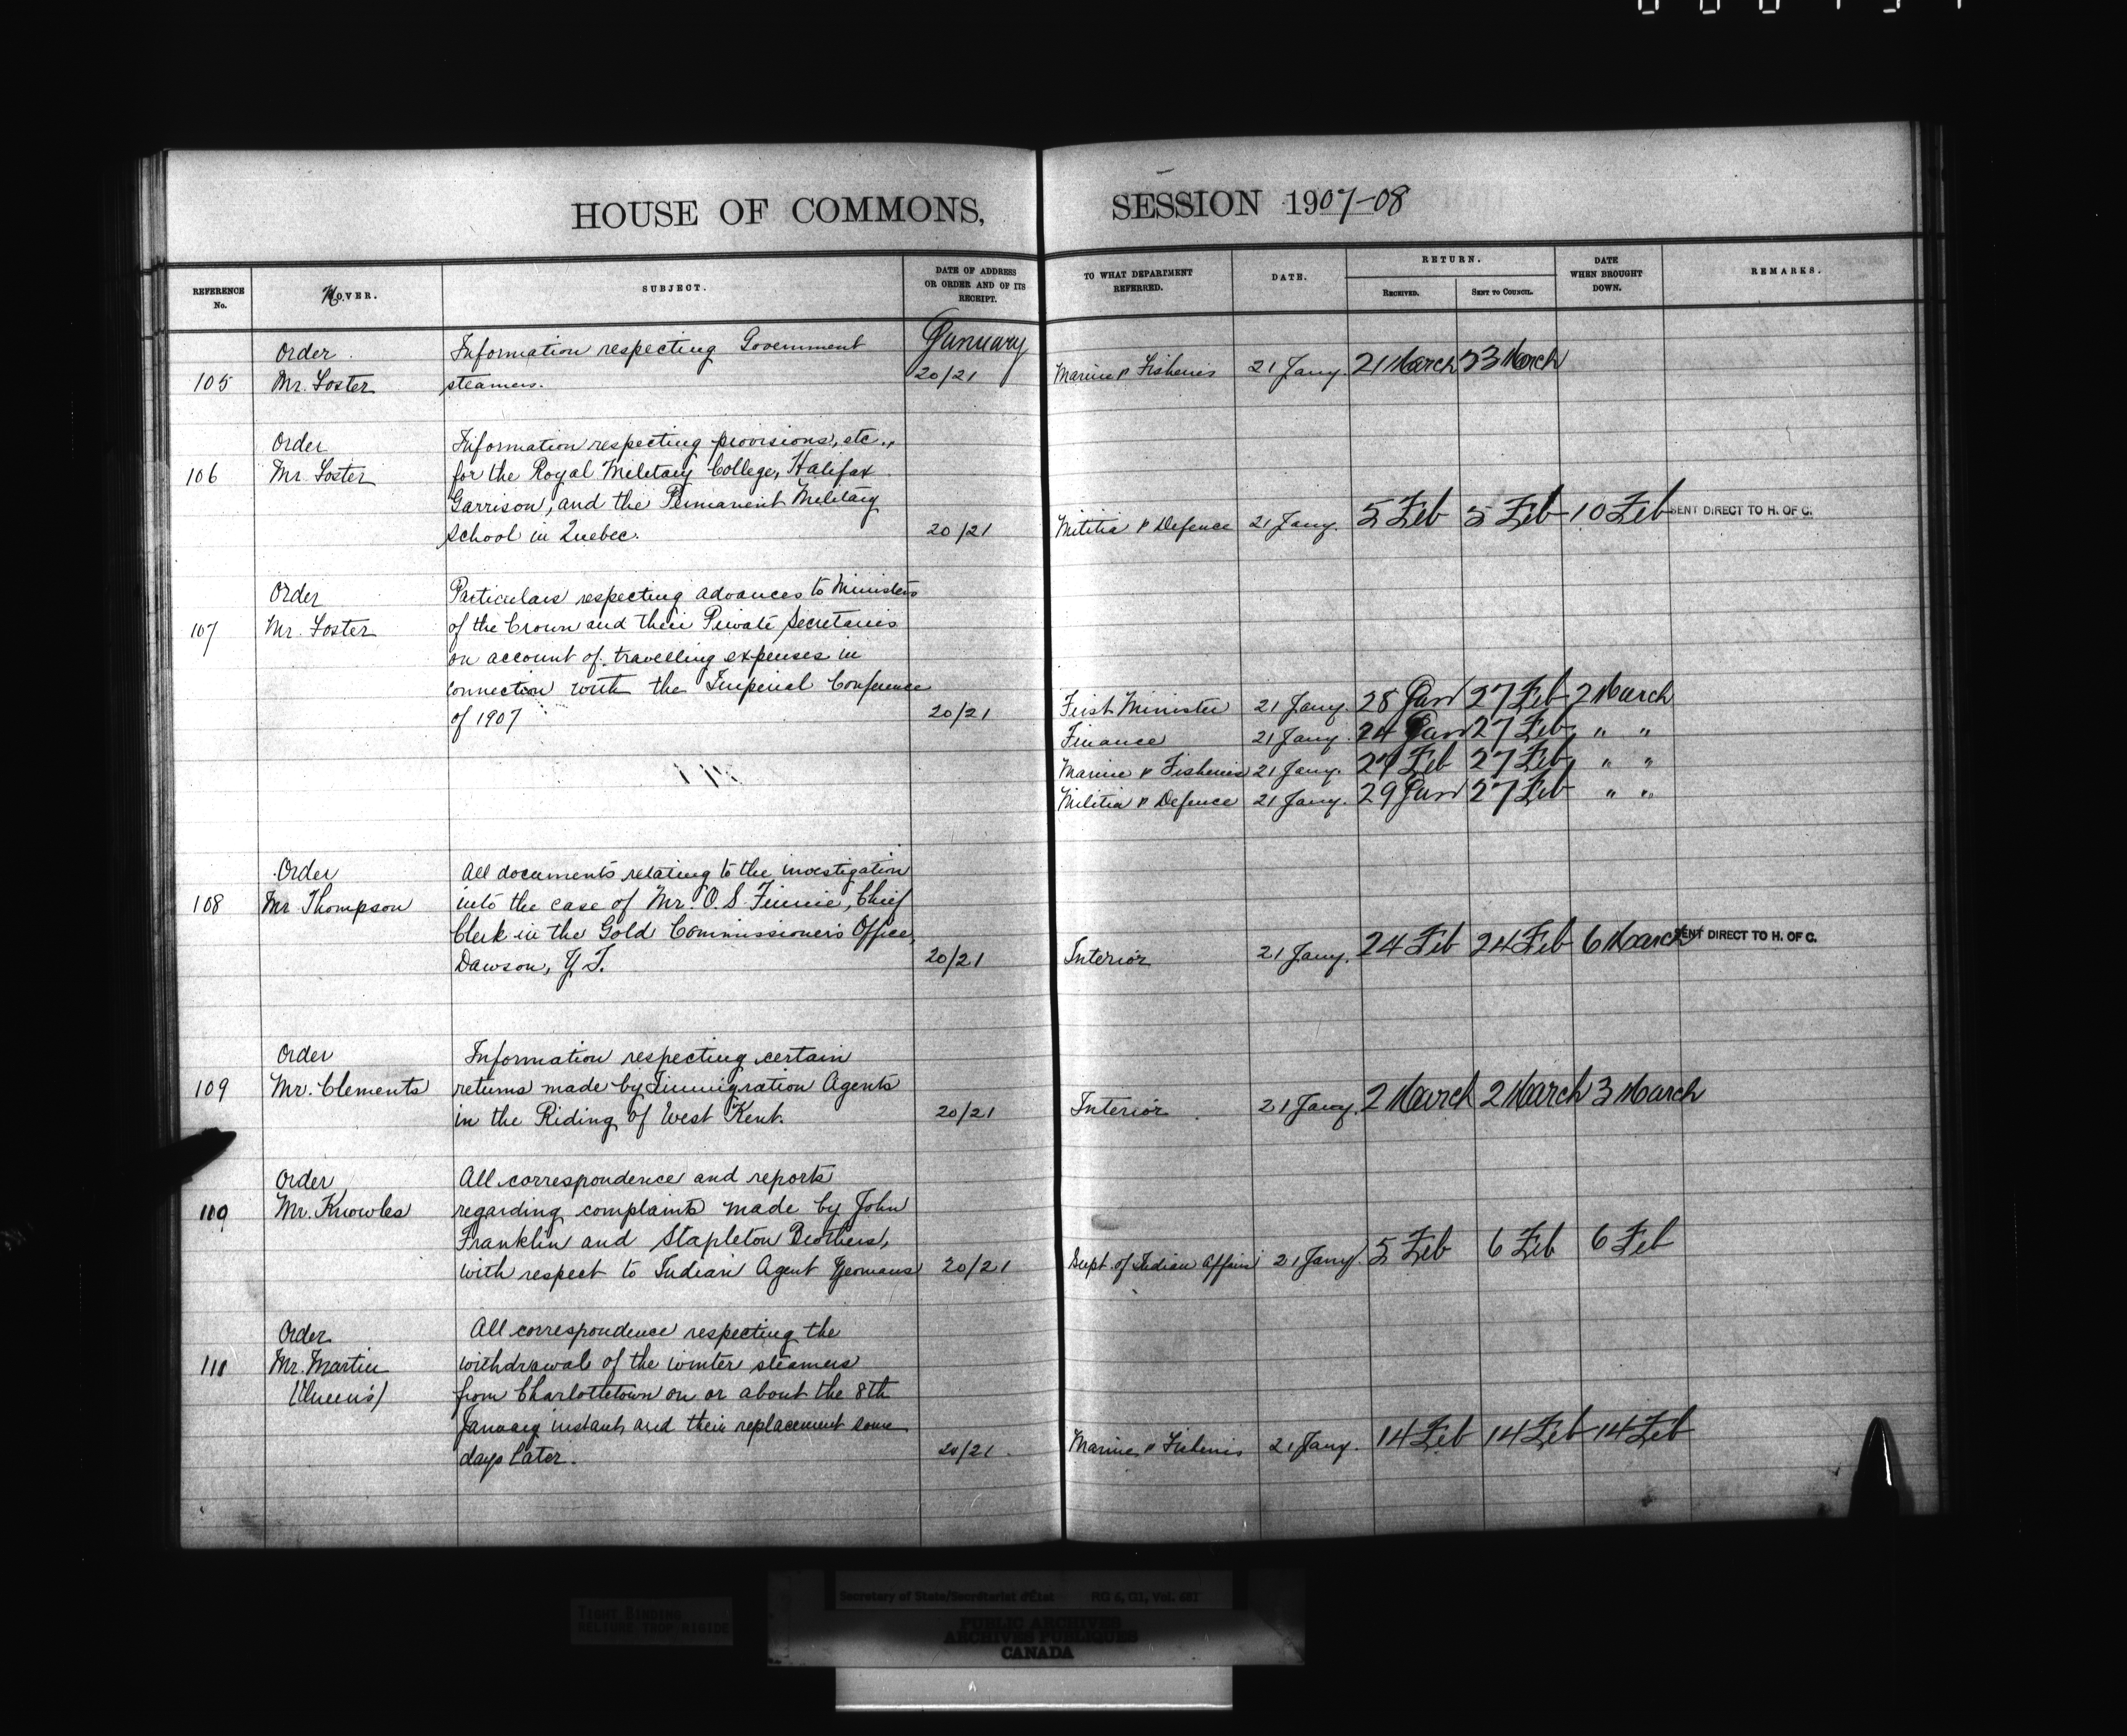 HOUSE OF COMMONS,
SESSION 1907-08
REFERENCE No.
MOVER.
SUBJECT.
DATE OF ADDRESS OR ORDER AND OF ITS RECEIPT.
TO WHAT DEPARTMENT REFERRED.
DATE.
RETURN.
RECEIVED.
SENT TO COUNCIL.
DATE WHEN BROUGHT DOWN.
REMARKS.
January
Order Information respecting Government
105 Mr. Foster steamers. 20/21 Marine & Fisheries 21 Jany. 21 March 23 March
Order Information respecting provisions, etc.,
106 Mr. Foster for the Royal Military College, Halifax
Garrison, and the Permanent Military
School in Quebec. 20/21 Militia & Defence 21 Jany. 5 Feb 5 Feb 10 Feb SENT DIRECT TO H. OF C.
Order Particulars respecting advances to Ministers
107 Mr. Foster of the Crown and their Private Secretaries
on account of travelling expenses in
connection with the Imperial Conference
of 1907 20/21 First Minister 21 Jany. 28 Jan 27 Feb 2 March
Finance 21 Jany. 24 Jan 27 Feb " "
Marine & Fisheries 21 Jany. Feb 27 Feb " "
Militia & Defence 21 Jany. 29 Jan 27 Feb " "
Order All documents relating to the investigation
108 Mr Thompson into the case of Mr. O. S. Finnie, Chief
Clerk in the Gold Commissioner's Office,
Dawson, Y.T. 20/21 Interior 21 Jany. 24 Feb 24 Feb 6 March SENT DIRECT TO H. OF C.
Order Information respecting certain
109 Mr. Clements returns made by Immigration Agents
in the Riding of West Kent. 20/21 Interior 21 Jany. 2 March 2 March 3 March
Order All correspondence and reports
110 Mr. Knowles regarding complaints made by John
Franklin and Stapleton Brothers,
with respect to Indian Agent Yeomans 20/21 Supt. of Indian Affairs 21 Jany. 5 Feb 6 Feb 6 Feb
Order All correspondence respecting the
111 Mr. Martin withdrawal of the winter steamers
(Queen's) from Charlottetown on or about the 8th
January instant, and their replacement some
days later. 20/21 Marine & Fisheries 21 Jany. 14 Feb 14 Feb 14 Feb
TIGHT BINDING
RELIURE TROP RIGIDE
Secretary of State/Secrétariat d'État RG 6, G1, Vol. 681
PUBLIC ARCHIVES
ARCHIVES PUBLIQUES
CANADA